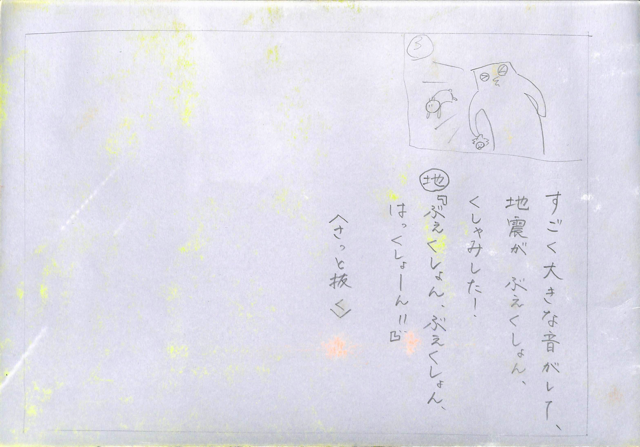 3
すごく大きな音がして、
地震が ぶえくしょん、
くしゃみした!
地『ぶえくしょん、ぶえくしょん、
はっくしょーん!!』
〈さっと抜く〉